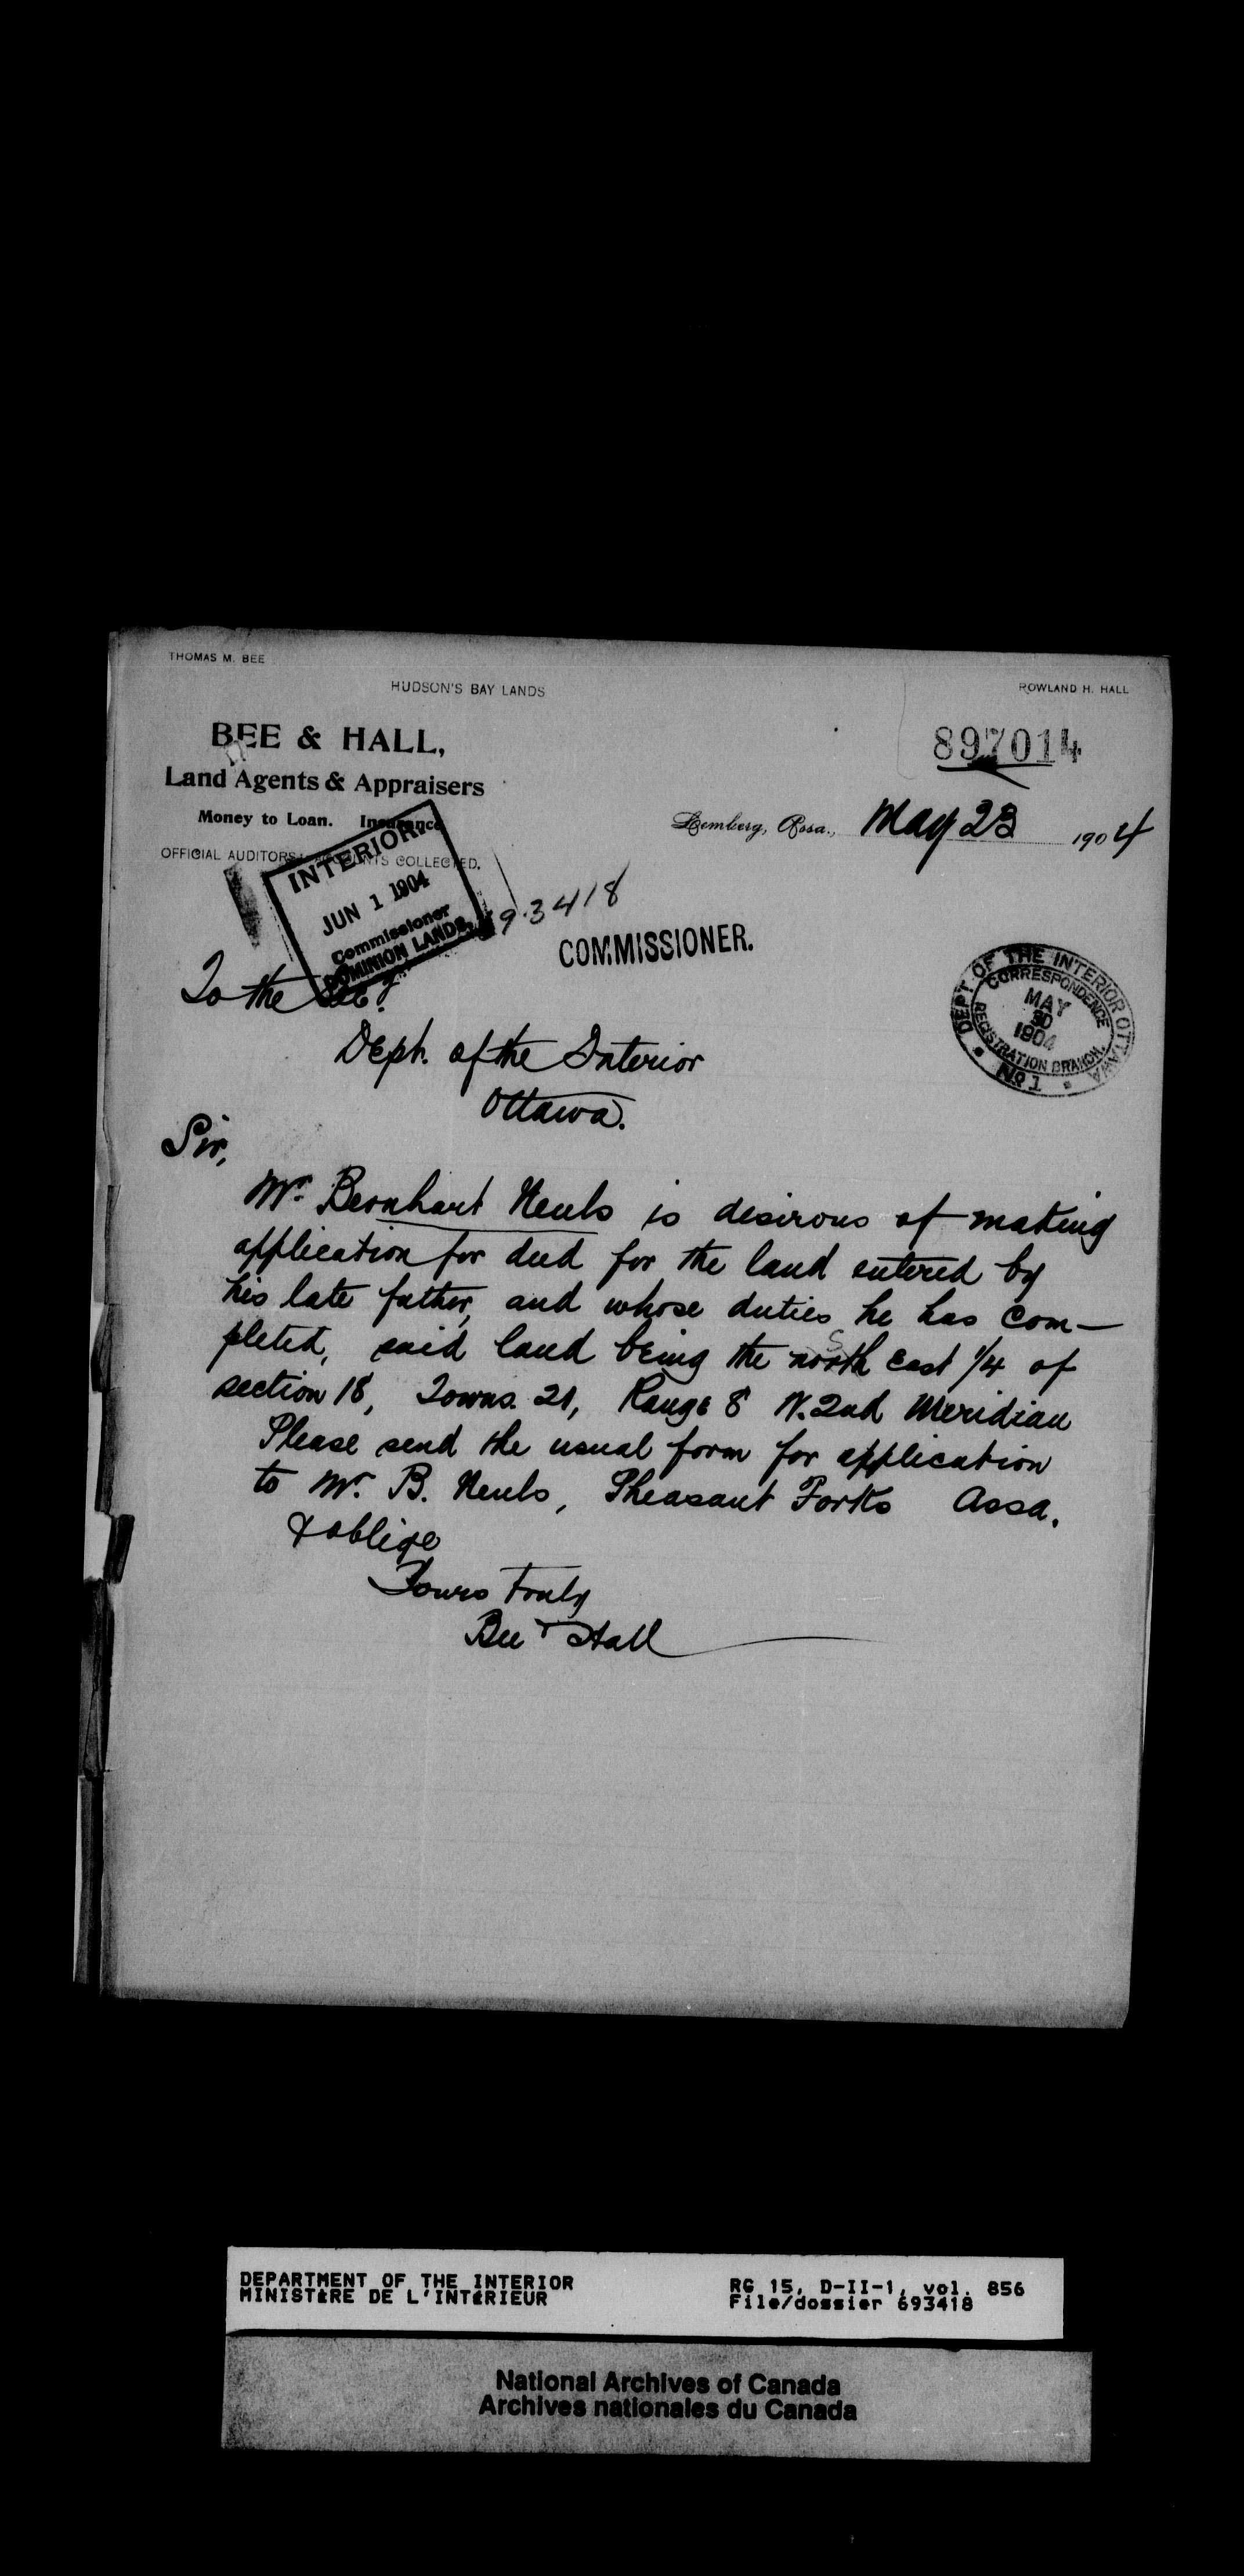 THOMAS M. BEE
HUDSON'S BAY LANDS
ROWLAND H. HALL
BEE & HALL,
Land Agents & Appraisers
Money to Loan. Insurance
OFFICIAL AUDITORS. ACCOUNTS COLLECTED.
897014
Lemberg, Assa., May 23 1904
INTERIOR
JUN 1 1904
Commissioner
DOMINION LANDS
693418
COMMISSIONER.
DEPT. OF THE INTERIOR OTTAWA
CORRESPONDENCE
MAY
30
1904
REGISTRATION BRANCH.
No 1
To the Secy.
Dept. of the Interior
Ottawa.
Sir,
Mr. Bernhart Neuls is desirous of making
application for deed for the land entered by
his late father, and whose duties he has com-
pleted, said land being the north east 1/4 of
section 18, Towns. 21, Range 8 W. 2nd Meridian
Please send the usual form for application
to Mr. B. Neuls, Pheasant Forks Assa.
& oblige
Yours truly
Bee & Hall
DEPARTMENT OF THE INTERIOR
MINISTÈRE DE L'INTÉRIEUR
RG 15, D-II-1, vol. 856
File/dossier 693418
National Archives of Canada
Archives nationales du Canada